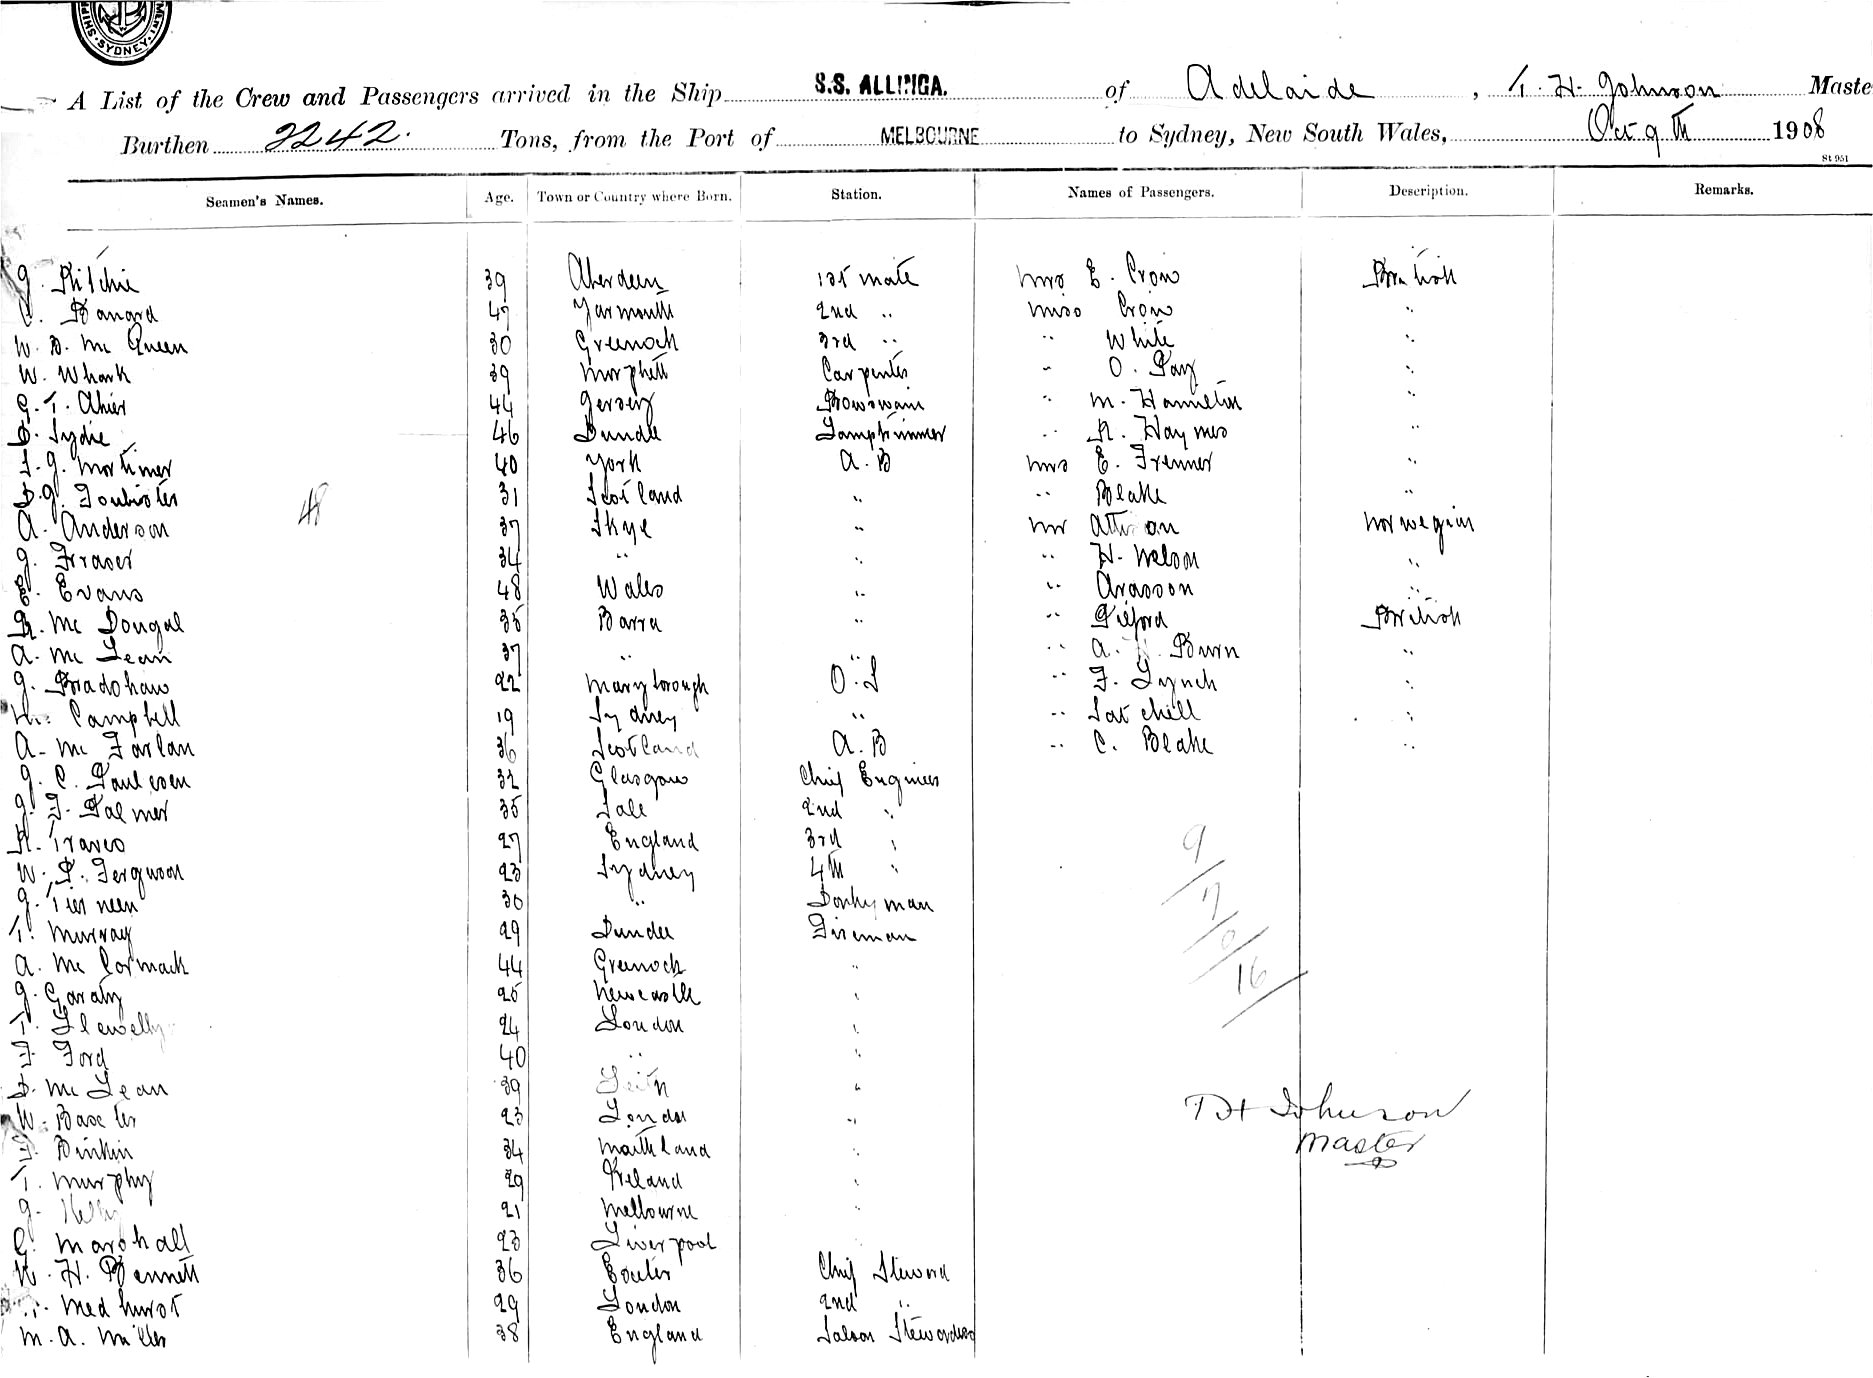 SYDNEY
A List of the Crew and Passengers arrived in the Ship S.S. ALLINGA. of Adelaide, T. H. Johnson Maste
Burthen 2242. Tons, from the Port of MELBOURNE to Sydney, New South Wales, Oct 9th 1908
St 951
Seamen's Names. Age. Town or Country where Born. Station. Names of Passengers. Description. Remarks.
J. Ritchie 39 Aberdeen 1st mate Mrs E. Crow British
C. Banard 47 Yarmouth 2nd " Miss Crow "
W. B. Mc Queen 30 Greenock 3rd " " White "
W. Whark 39 Morphett Carpenter " O. Day "
G. T. Ahier 44 Jersey Bowswain " M. Hamilton "
Lydie 46 Dundee Lamptrimmer " R. Haymes "
J. Mortimer 40 York A. B Mrs E. Frenner "
J. Foubister 31 Scotland " " Blake "
48
A. Anderson 37 Skye " Mr Norwegian
J. Fraser 34 " " " H. Nelson "
Evans 48 Wales " " Arasson "
R. Mc Dougal 35 Barra " " Gilford British
A. Mc Lean 37 " " " A. Burn "
J. Bradshaw 22 Maryborough O. S " F. Lynch "
Campbell 19 Sydney " " Satchell "
A. Mc Farlan 36 Scotland A. B " C. Blake "
J. C. Paulsen 32 Glasgow Chief Engineer
J. F. Palmer 35 Sale 2nd "
R. Travers 27 England 3rd "
W. P. Ferguson 23 Sydney 4th "
J. Tierneen 30 " Donkyman
T. Murray 29 Dundee Fireman
A. Mc Cormack 44 Greenock "
J. Garaty 25 Newcastle "
T. Llewelly 24 London "
F. Ford 40 " "
D. Mc Lean 39 Leith "
W. Baxter 23 London "
F. Binkin 34 Maithland "
T. Murphy 29 Ireland "
J. Kelly 21 Melbourne "
C. Marshall 23 Liverpool
W. H. Bennett 36 Exeter Chief Steward
Medhurst 29 London 2nd "
M. A. Miller 38 England Saloon Stewardess
9/7/0/16
T H Johnson
Master